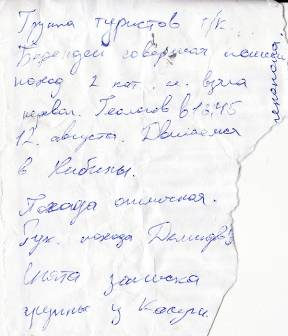 Группа туристов т/к
Берендей совершая пеший
поход 2 кат. с. взяла
перевал Геологов в 16.45
12 августа. Двигаемся
в Хибины.
Погода отличная.
Рук. похода Демидов
Снята записка
группы из